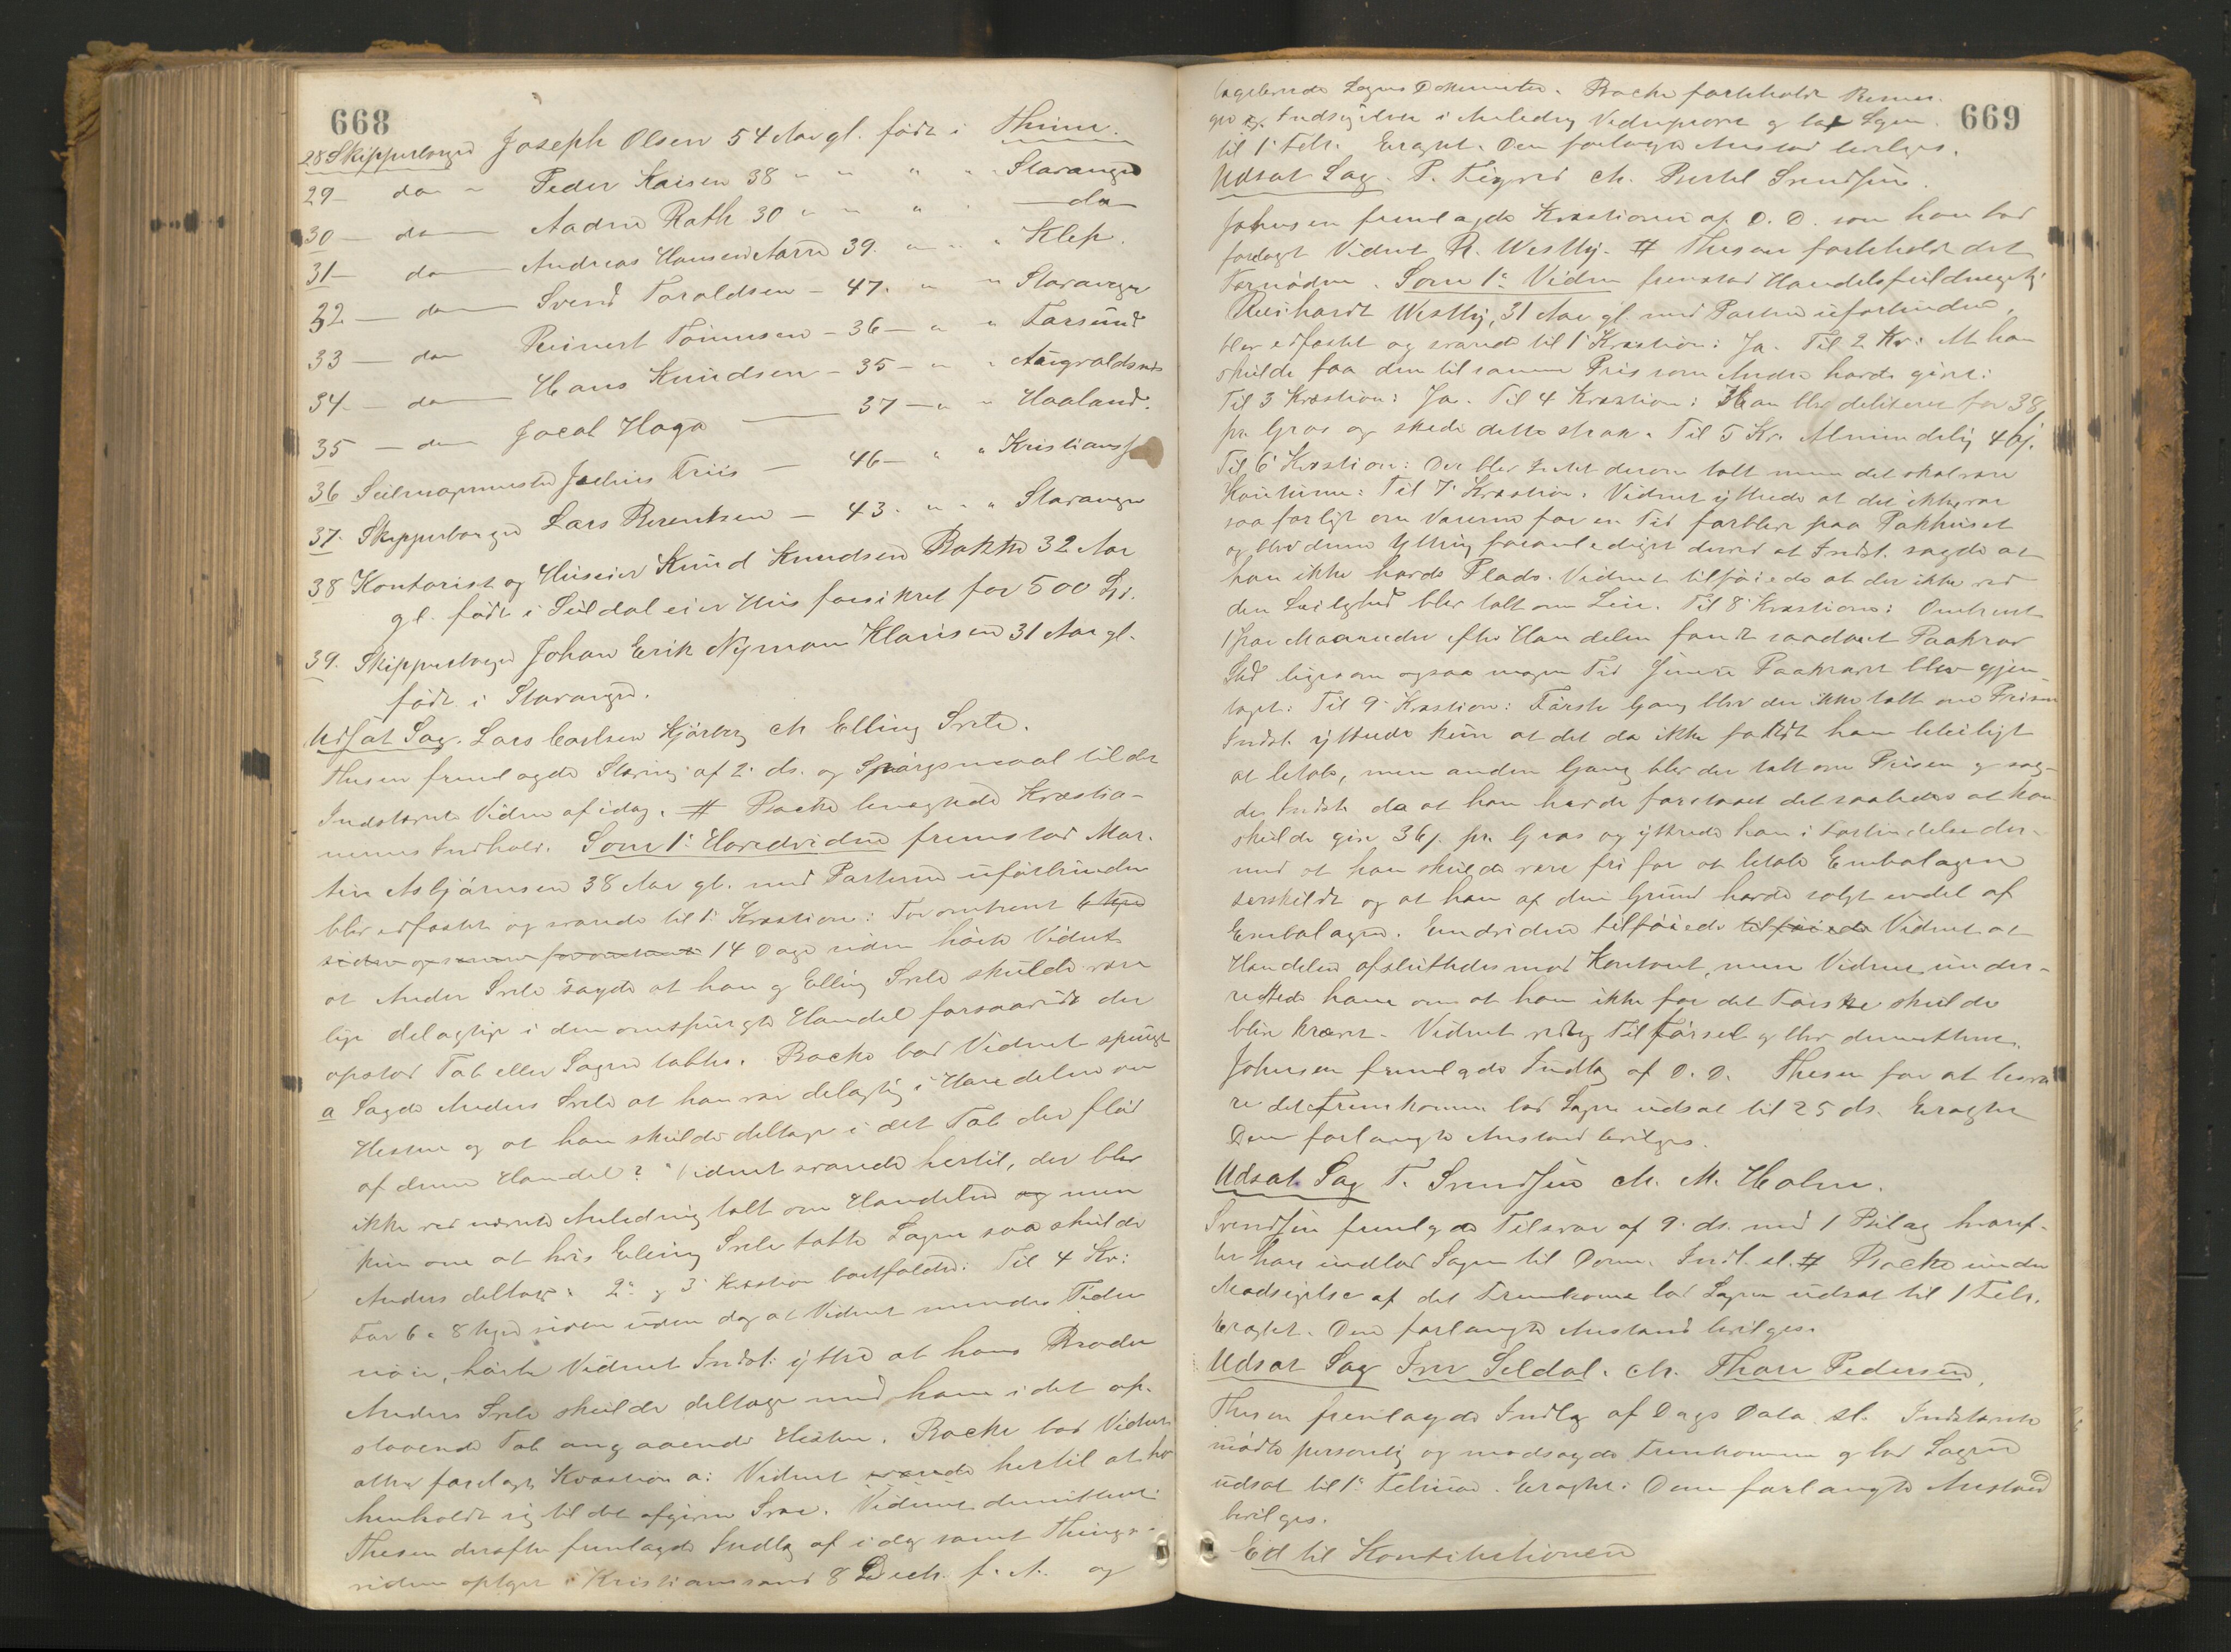 668
28 Skipperborger Joseph Olsen 54 Aar gl. födt i Thime.
29 — do " Peder Kaisen 38 " " " " Stavanger
30 — do — Aadne Rath 30 " " " — do
31 — do — Andreas Hansen Aarre 39. " " " Klep.
32 — do — Svend Taraldsen — 47. " " Stavanger
33 — do Reinert Tönnesen — 36 — " " Farsund
34 — do — Hans Knudsen — 35 — " " Augvaldsnes
35 — do Jacob Haga — 37 — " " Haaland.
36 Seilmagermester Jochius Friis — 46 — " " Kristianss
37. Skipperborger Lars Berentsen — 43. " " " Stavanger
38 Kontorist og Huseier Knud Knudsen Bakke 32 Aar
gl. födt i Suldal eier Hus forsikret for 500 Sp.
39. Skipperborger Johan Erik Nyman Klausen 31 Aar gl.
födt i Stavanger.
Udsat Sag. Lars Carlsen Kjörberg ctr Elling Svele.
Thesen fremlagde Stevning af 2. ds. og Spörgsmaal til de
Indstevnte Vidner af idag. # Backe benegtede Kvæstio-
nernes Indhold. Som 1' Hovedvidne fremstod Mar-
tin Asbjörnsen 38 Aar gl. med Parterne uforbunden
blev edfæstet og svarede til 1' Kvæstion: For omtrent 6 Uger
siden og senere for omtrent 14 Dage siden hörte Vidnet
at Anders Svele sagde at han og Elling Svele skulde være
lige delagtige i den omspurgte Handel forsaavidt der
opstod Tab eller Sagen tabtes. Backe bad Vidnet spurgt
a Sagde Anders Svele at han var delagtig i Handelen om
Hesten og at han skulde deltage i det Tab der flöd
af denne Handel? Vidnet svarede hertil, der blev
ikke ved nævnte Anledning talt om Handelen og men
kun om at hvis Elling Svele tabte Sagen saa skulde
Anders deltage. 2' og 3' Kvæstion bortfaldt. Til 4 Kv:
For 6 a 8 Uger siden uden dog at Vidnet mindes Tiden
nöie, hörte Vidnet Indst. yttre at hans Broder
Anders Svele skulde deltage med ham i det op-
staaende Tab angaaende Hesten. Backe bad Vidnet
atter forelagt Kvæstion a: Vidnet svarede hertil at han
henholdt sig til det afgivne Svar. Vidnet demitteret.
Thesen derefter fremlagde Indlæg af idag samt Things-
vidne optaget i Kristianssand 8 Decbr. f. A. og
669
begjerende Sagens Dokumenter. Backe forbeholdt Bemær-
gr og Indsigelser i Anledning Vidneprovet og bad Sagen
til 1' Febr. Eragtet. Den forlangte Anstand bevilges.
Udsat Sag. P. Tigsted ctr. Bertel Svendsen.
Johnsen fremlagde Kvæstioner af D. D. som han bad
forelagt Vidnet R. Westby. # Thesen forbeholdt det
Fornödne. Som 1' Vidne fremstod Handelsfuldmægtig
Reinhardt Westby, 31 Aar gl. med Parterne uforbunden,
blev edfæstet og svarede til 1' Kvæstion: Ja. Til 2 Kv: At han
skulde faa den til samme Pris som Andre havde givet:
Til 3 Kvæstion: Ja. Til 4 Kvæstion: Han blev debiteret for 38
pr. Gros og skede dette strax. Til 5 Kv. Almindelig 4
Til 6' Kvæstion: Der blev Intet derom talt men det skal være
Kutume: Til 7' Kvæstion. Vidnet yttrede at det ikke var
saa farligt om Varerne for en Tid forblev paa Pakhuset
og blev denne Yttring foranlediget derved at Indst. sagde at
han ikke havde Plads. Vidnet tilföiede at der ikke ved
den Leilighed blev talt om Leie. Til 8' Kvæstion: Omtrent
1 Par Maaneder efter Handelen fandt saadant Paakrav
Sted ligesom ogsaa nogen Tid senere Paakravet blev gjen-
taget: Til 9' Kvæstion: Förste Gang blev der ikke talt om Prisen
Indst. yttrede kun at det da ikke faldt ham beleiligt
at betale, men anden Gang blev der talt om Prisen og sag-
de Indst. da at han havde forstaaet det saaledes at han
skulde give 36 pr. Gros og yttrede han i Forbindelse der-
med at han skulde være fri for at betale Embalagen
særskildt og at han af den Grund havde solgt endel af
Embalagen. Endvidere tilföiede tilföiede Vidnet at
Handelen afsluttedes mod Kontant, men Vidnet under-
rettede ham om at han ikke for det Förske skulde
blive krævet. Vidnet vedtog Tilförsel og blev demitteret.
Johnsen fremlagde Indlæg af D. D. Thesen for at besva
re det Fremkomne bad Sagen udsat til 25 ds. Eragtet
Den forlangte Anstand bevilges.
Udsat Sag T. Svendsen ctr. M. Holm.
Svendsen fremlagde Tilsvar af 9. ds. med 1 Bilag hvoref-
ter han indlod Sagen til Dom. Indl. sl. # Backe under
Modsigelse af det Fremkomne bad Sagen udsat til 1 Febr.
Eragtet. Den forlangte Anstand bevilges.
Udsat Sag Iver Seldal. ctr. Thore Pedersen,
Thesen fremlagde Indlæg af Dags Dato sl. Indstevnte
mödte personlig og modsagde Fremkomne og bad Sagen
udsat til 1' Februar. Eragtet: Den forlangte Anstand
bevilges.
Ed til Konstitutionen